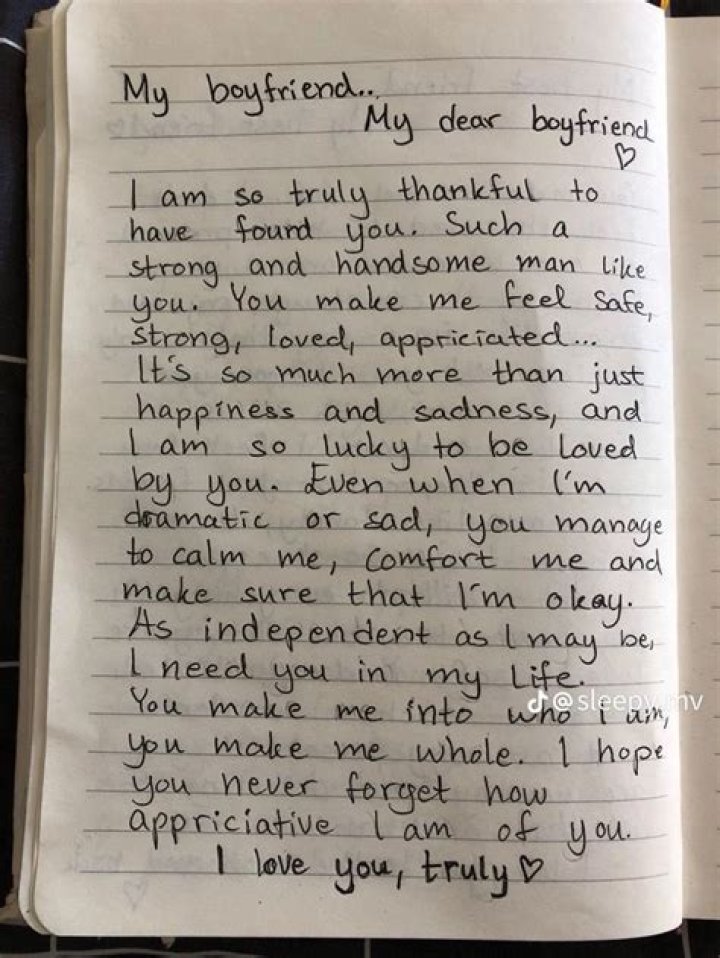 My boyfriend..
My dear boyfriend
♡
I am so truly thankful to
have found you. Such a
strong and handsome man like
you. You make me feel safe,
strong, loved, appriciated...
It's so much more than just
happiness and sadness, and
I am so lucky to be loved
by you. Even when I'm
dramatic or sad, you manage
to calm me, comfort me and
make sure that I'm okay.
As independent as I may be,
I need you in my life.
@sleepy.mv
You make me into who I am,
you make me whole. I hope
you never forget how
appriciative I am of you.
I love you, truly ♡